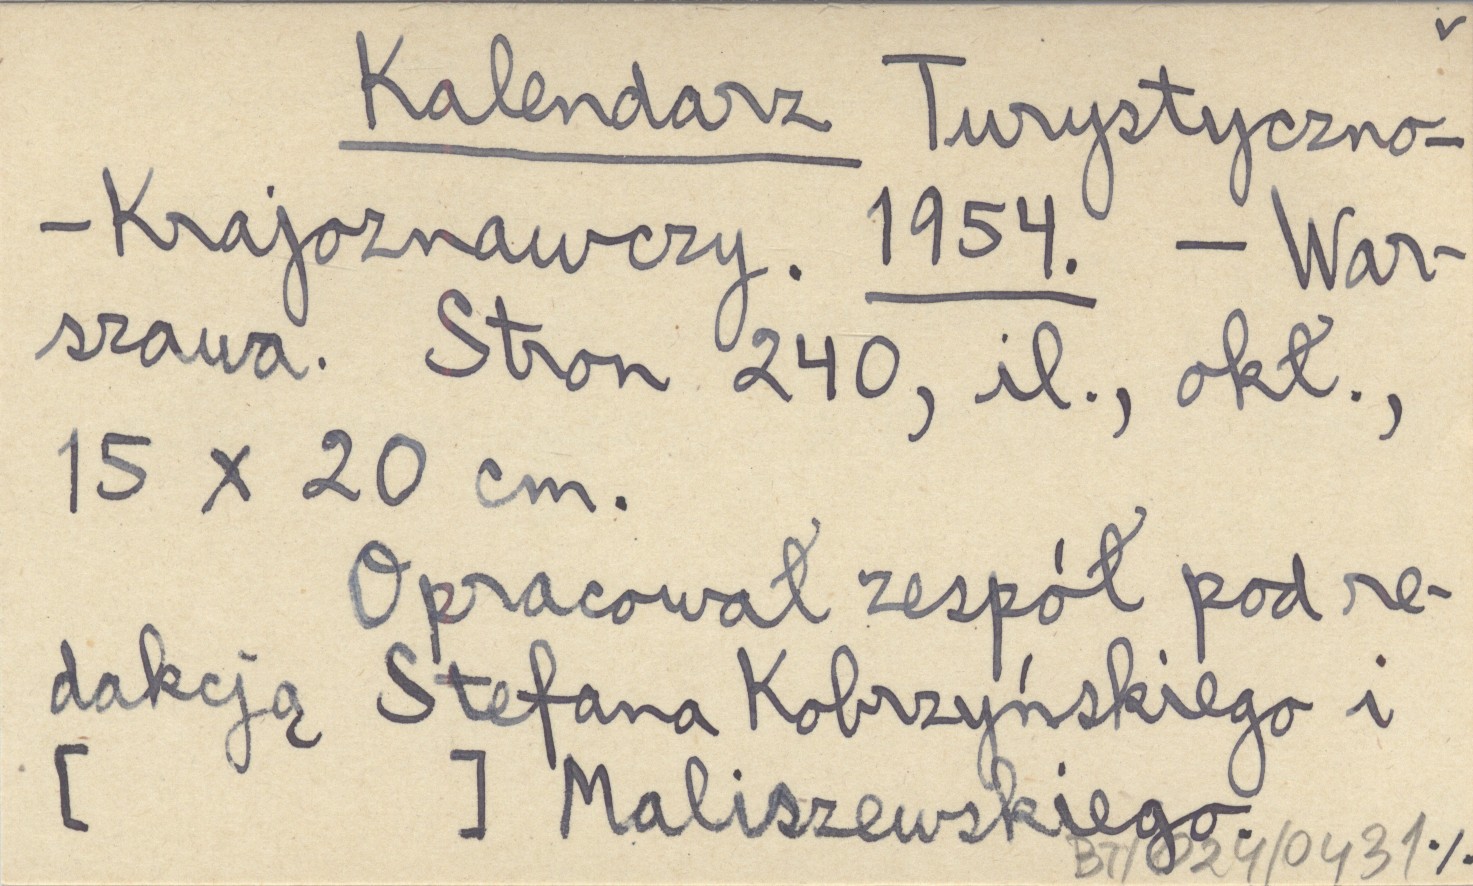 Kalendarz Turystyczno-
-Krajoznawczy. 1954. — War-
szawa. Stron 240, il., okł.,
15 x 20 cm.
Opracował zespół pod re-
dakcją Stefana Kobrzyńskiego i
[ ] Maliszewskiego.
BT/024/0431 ./.